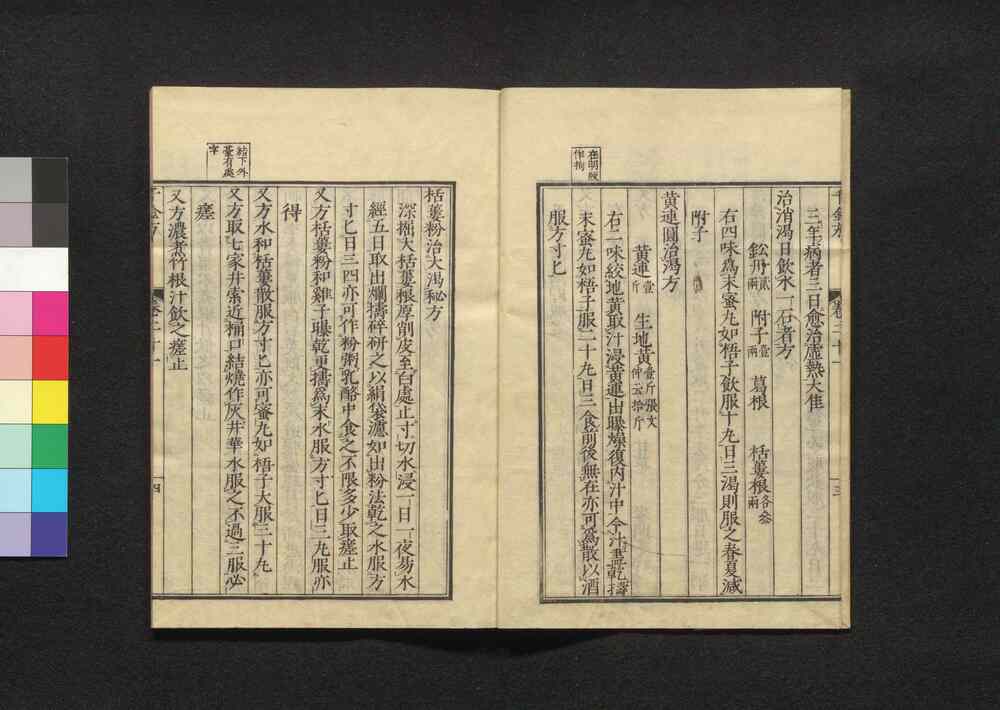 三年病者三日愈治虛熱大佳
治消渴日飲水一石者方
鈆丹貳兩 附子壹兩 葛根 栝蔞根各叄兩
右四味爲末蜜丸如梧子飲服十丸日三渴則服之春夏減
附子
黄連圓治渴方
黄連壹斤 生地黄壹斤張文仲云拾斤
右二味絞地黄取汁浸黄連出曝燥復内汁中令汁盡乾擣
末蜜丸如梧子服二十丸日三食前後無在亦可爲散以酒
服方寸匕
栝蔞粉治大渴秘方
深掘大栝蔞根厚削皮至白處止寸切水浸一日一夜易水
經五日取出爛擣碎研之以絹袋濾如出粉法乾之水服方
寸匕日三四亦可作粉粥乳酪中食之不限多少取瘥止
又方栝蔞粉和雞子曝乾更擣爲末水服方寸匕日三丸服亦
得
又方水和栝蔞散服方寸匕亦可蜜丸如梧子大服三十丸
又方取七家井索近桶口結燒作灰井華水服之不過三服必
瘥
又方濃煮竹根汁飲之瘥止
十四
結下外
臺有處
字